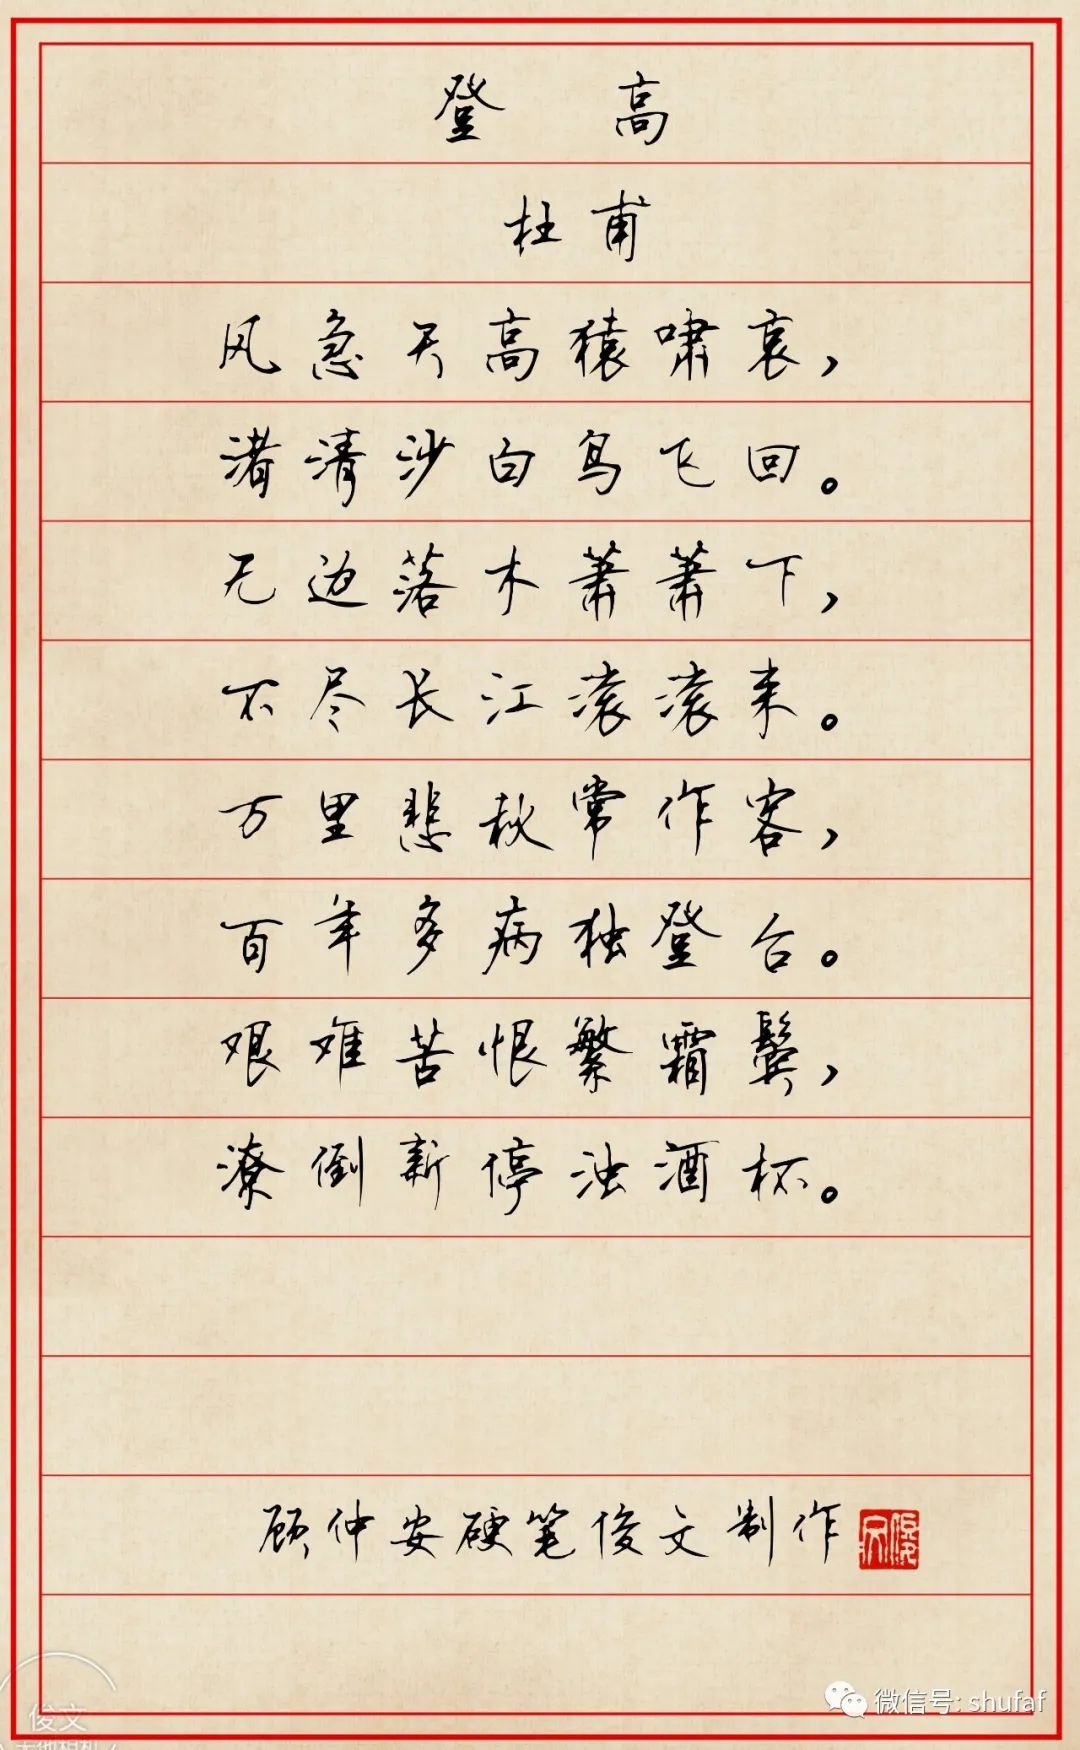 登 高
杜甫
风急天高猿啸哀，
渚清沙白鸟飞回。
无边落木萧萧下，
不尽长江滚滚来。
万里悲秋常作客，
百年多病独登台。
艰难苦恨繁霜鬓，
潦倒新停浊酒杯。
顾仲安硬笔俊文制作
微信号: shufaf
俊文